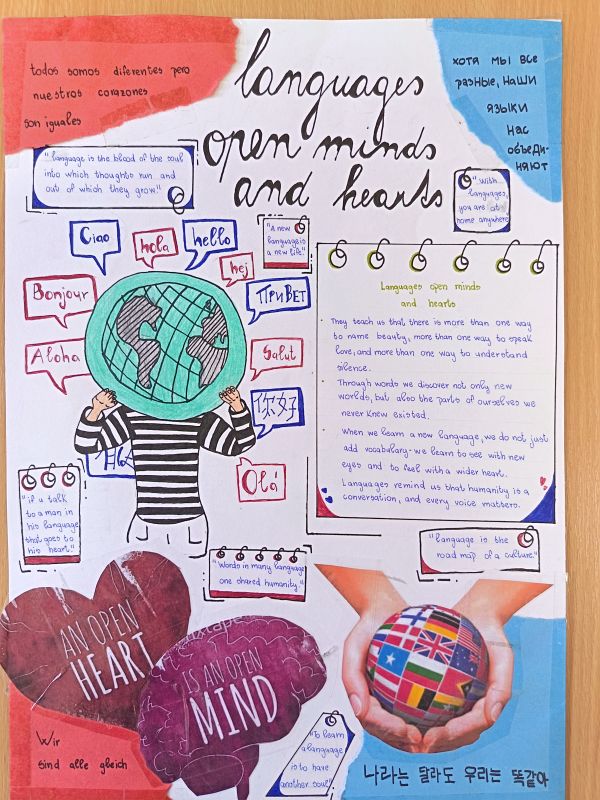 languages
open minds
and hearts
todos somos diferentes pero
nuestros corazones
son iguales
хотя мы все
разные, наши
языки
нас
объеди-
няют
"language is the blood of the soul
into which thoughts run and
out of which they grow."
"With
languages,
you are at
home anywhere
"A new
language is
a new life."
Ciao
hola
hello
hej
Bonjour
Привет
Aloha
Salut
你好
Olá
Languages open minds
and hearts
They teach us that there is more than one way
to name beauty, more than one way to speak
love, and more than one way to understand
silence.
Through words we discover not only new
worlds, but also the parts of ourselves we
never knew existed.
When we learn a new language, we do not just
add vocabulary-we learn to see with new
eyes and to feel with a wider heart.
Languages remind us that humanity is a
conversation, and every voice matters.
"if u talk
to a man in
his language
that goes to
his heart."
"Words in many language
one shared humanity."
"language is the
road map of a culture."
AN OPEN
HEART
IS AN OPEN
MIND
"To learn
a language
is to have
another soul"
Wir
sind alle gleich
나라는 달라도 우리는 똑같아